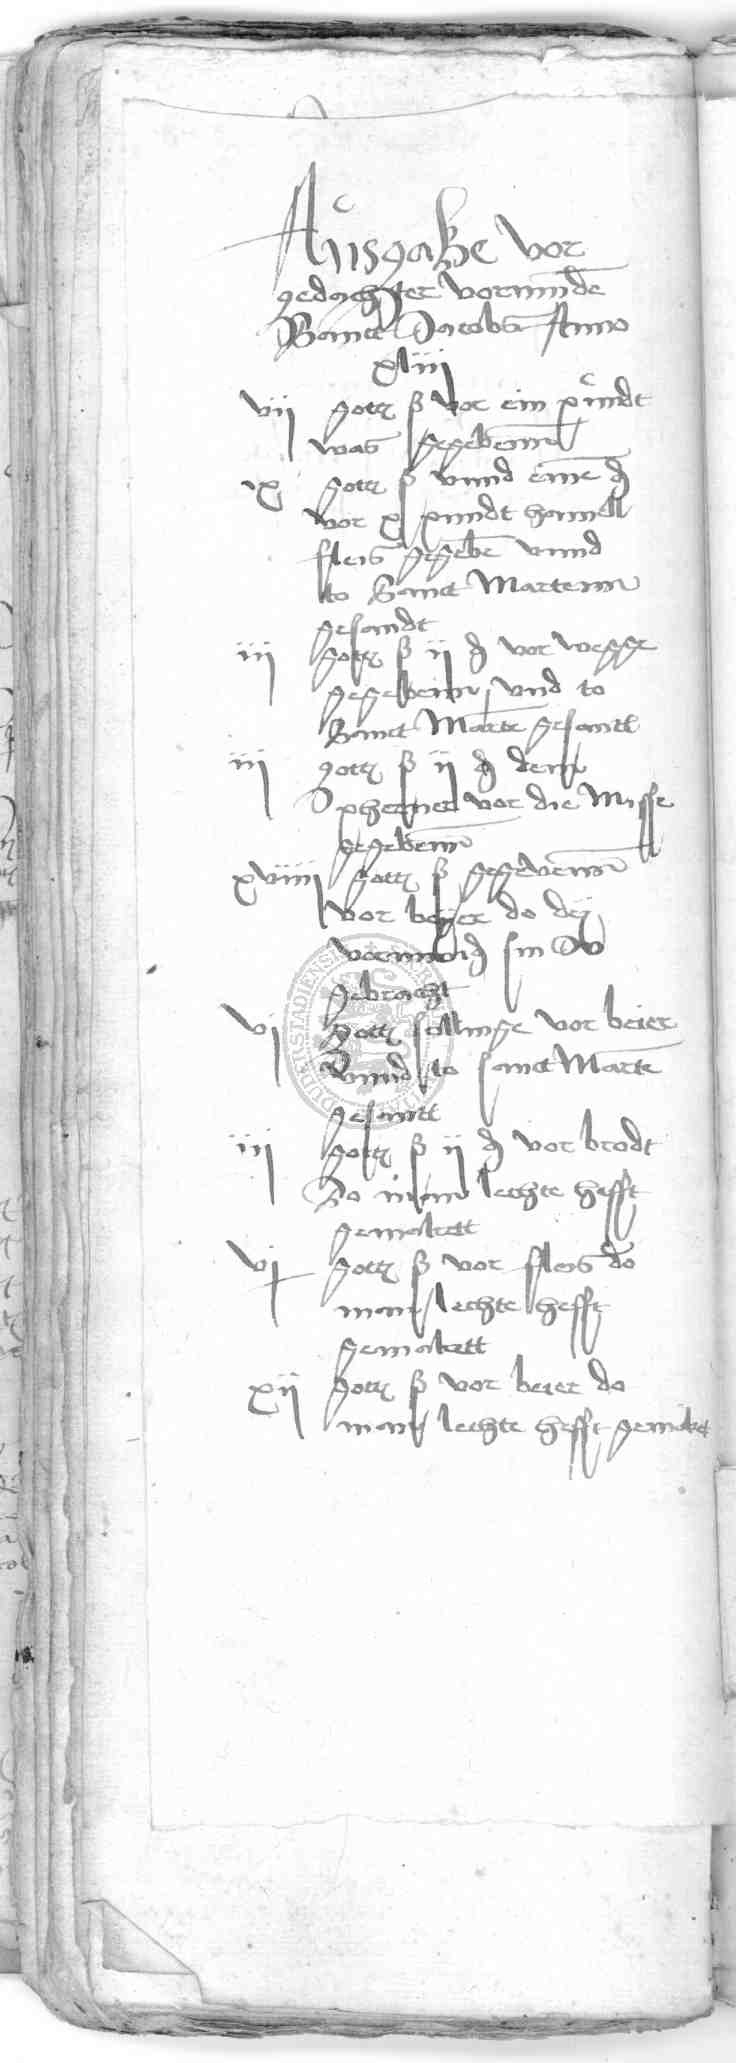 Ausgabe vor
gedachter vormunde
Sanct Jacobs Anno
xliii
vij gott ß vor ein pundt
was gegebenn
ix gott ß unnd eine ₰
vor x pundt hamell
fleis gegebe unnd
to Sanct Martenn
gesandt
iij gott ß ij ₰ vor wegge
gegebenn und to
Sanct Marte gesantt
iij gott ß ij ₰ dem
Opherner vor die Misse
gegebenn
xviiij gott ß gegevenn
vor beyer do dey
vormund sin
gebracht
vj gott scillinge vor beier
unnd to sanct Marte
gesantt
iij gott ß ij ₰ vor brodt
do man lechte hefft
gemakett
vj gott ß vor fleis do
man lechte hefft
gemakett
xij gott ß vor beier do
man lechte hefft gemaket